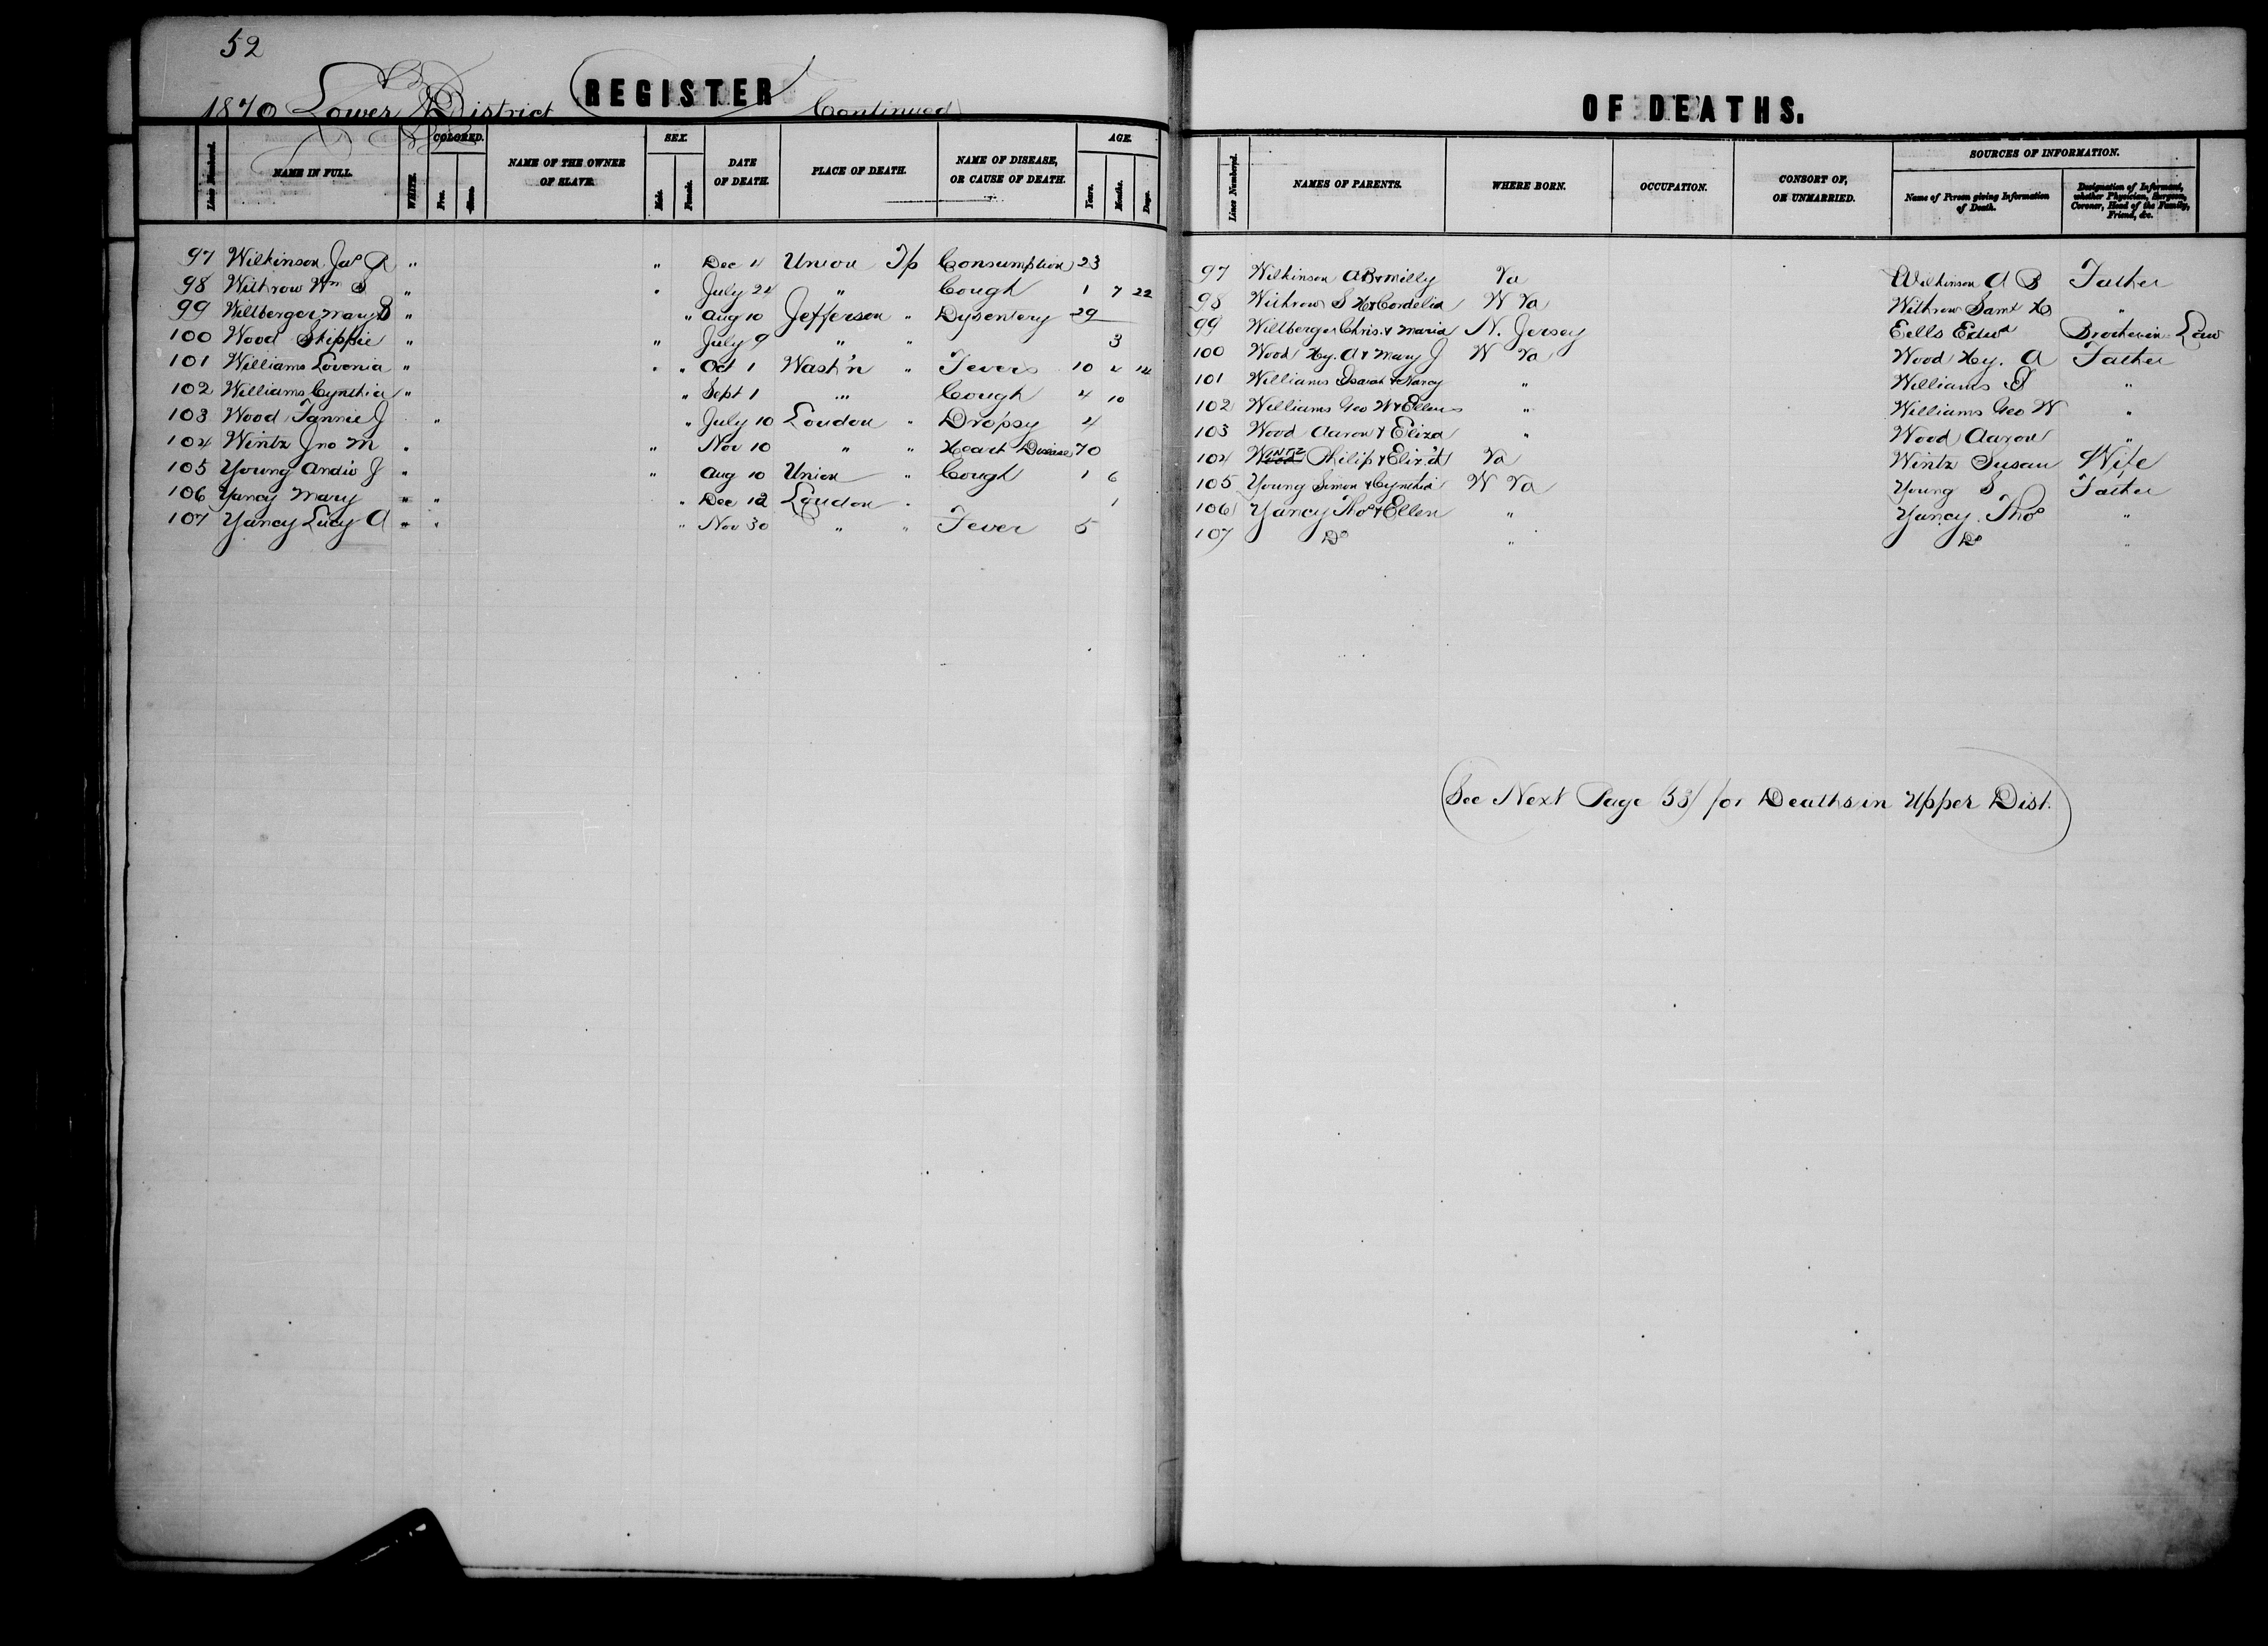 52
1870 Lower District REGISTER Continued
Lines Numbered. NAME IN FULL. WHITE. COLORED. Free. Slave. NAME OF THE OWNER OF SLAVE. SEX. Male. Female. DATE OF DEATH. PLACE OF DEATH. NAME OF DISEASE, OR CAUSE OF DEATH. AGE. Years. Months. Days.
97 Wilkinson Jas R " " Dec 4 Union Tp Consumption 23
98 Withrow Wm S " " July 24 " Cough 1 7 22
99 Wiltberger Mary B " " Aug 10 Jefferson " Dysentery 29
100 Wood Skippie " " July 9 " " 3
101 Williams Lovenia " " " Oct 1 Wast'n " Fever 10 4 14
102 Williams Cynthia " " Sept 1 " Cough 4 10
103 Wood Fannie J " " July 10 Loudon " Dropsy 4
104 Wintz Jno M " " Nov 10 " " Heart Disease 70
105 Young Andw J " " Aug 10 Union " Cough 1 6
106 Yancy Mary " " " Dec 12 Loudon " 1
107 Yancy Lucy A " " " Nov 30 " " Fever 5
OF DEATHS.
Lines Numbered. NAMES OF PARENTS. WHERE BORN. OCCUPATION. CONSORT OF, OR UNMARRIED. SOURCES OF INFORMATION. Name of Person giving Information of Death. Designation of Informant, whether Physician, Surgeon, Coroner, Head of the Family, Friend, &c.
97 Wilkinson A B & Milly Va Wilkinson A B Father
98 Withrow S H & Cordelia W Va Withrow Saml H "
99 Wiltberger Chris. & Maria N. Jersey Eells Edwd Brother in Law
100 Wood Hy. A & Mary J W Va Wood Hy. A Father
101 Williams Isaiah & Nancy " Williams I "
102 Williams Geo W & Ellen " Williams Geo W "
103 Wood Aaron & Eliza " Wood Aaron "
104 WINTZ Philip & Eliz'th Va Wintz Susan Wife
105 Young Simon & Cynthia W Va Young S Father
106 Yancy Thos & Ellen " Yancy Thos "
107 Do " Do "
See Next Page 53 for Deaths in Upper Dist.